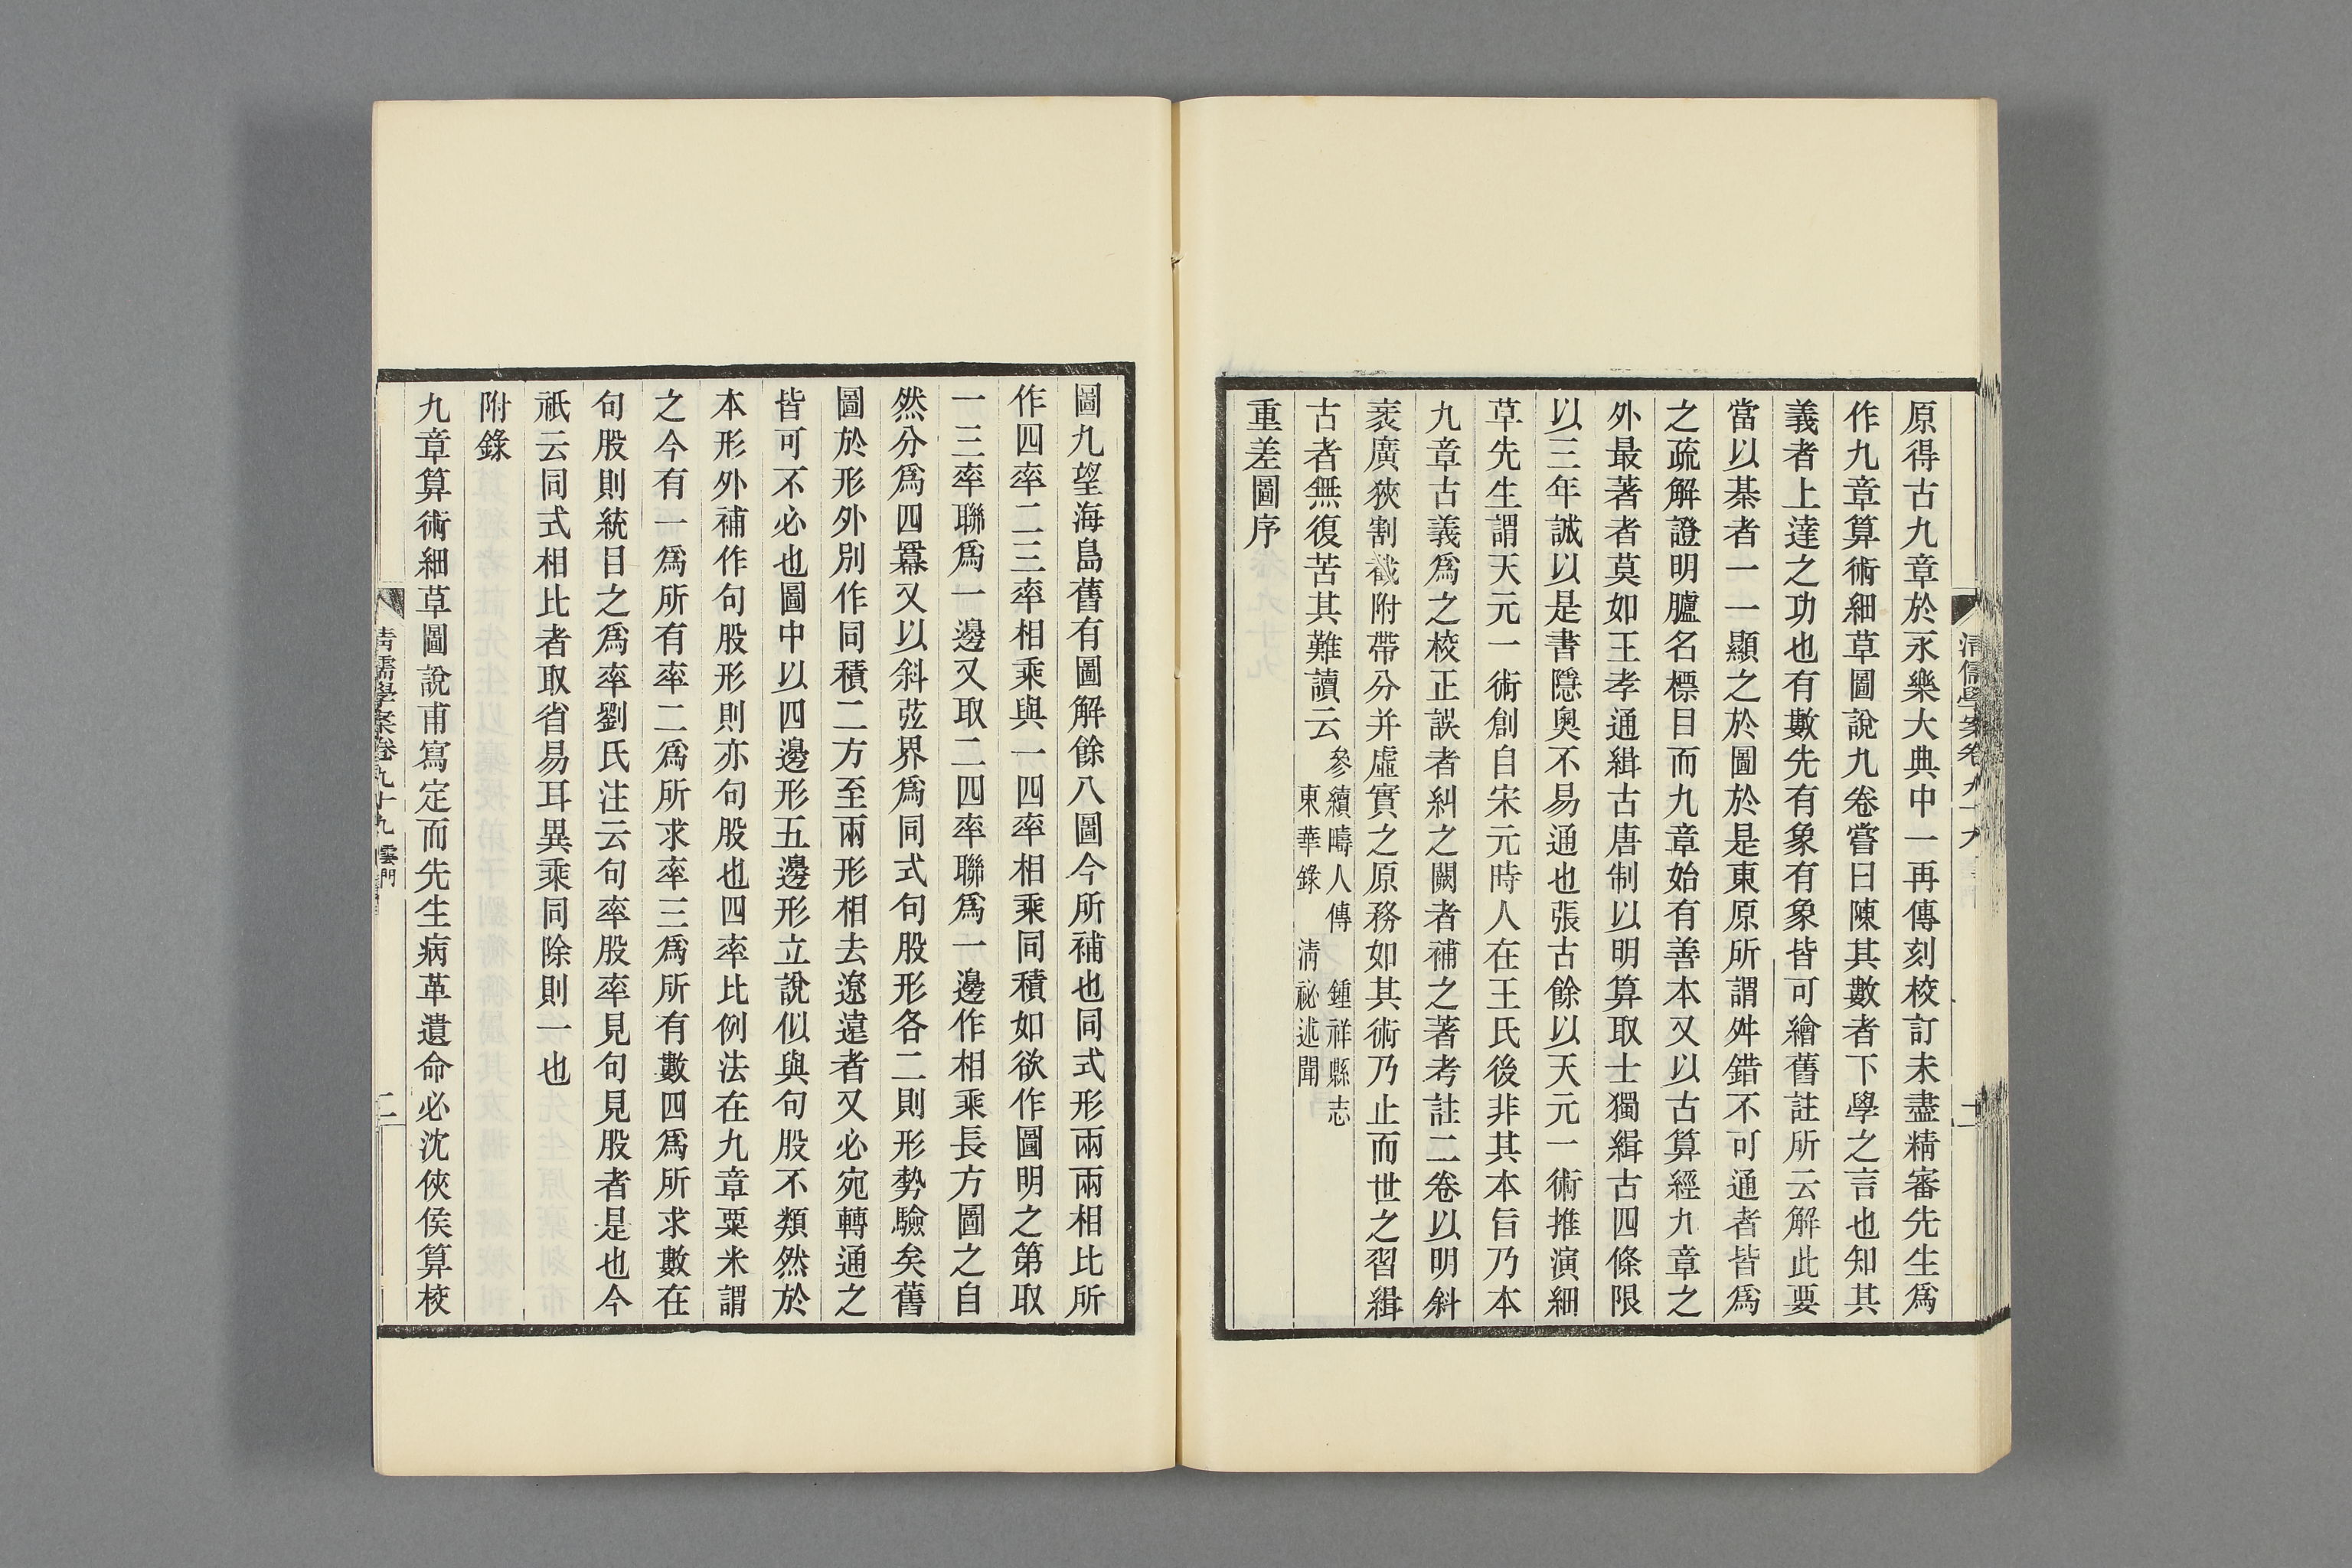 原得古九章於永樂大典中一再傳刻校訂未盡精審先生爲
作九章算術細草圖說九卷嘗曰陳其數者下學之言也知其
義者上達之功也有數先有象有象皆可繪舊註所云解此要
當以棊者一一顯之於圖於是東原所謂舛錯不可通者皆爲
之疏解證明臚名標目而九章始有善本又以古算經九章之
外最著者莫如王孝通緝古唐制以明算取士獨緝古四條限
以三年誠以是書隱奧不易通也張古餘以天元一術推演細
草先生謂天元一術創自宋元時人在王氏後非其本旨乃本
九章古義爲之校正誤者糾之闕者補之著考註二卷以明斜
袤廣狹割截附帶分并虛實之原務如其術乃止而世之習緝
古者無復苦其難讀云參續疇人傳 鍾祥縣志
東華錄 淸祕述聞
重差圖序
清儒學案卷九十九
二
圖九望海島舊有圖解餘八圖今所補也同式形兩兩相比所
作四率二三率相乘與一四率相乘同積如欲作圖明之第取
一三率聯爲一邊又取二四率聯爲一邊作相乘長方圖之自
然分爲四冪又以斜弦界爲同式句股形各二則形勢驗矣舊
圖於形外別作同積二方至兩形相去遼遠者又必宛轉通之
皆可不必也圖中以四邊形五邊形立說似與句股不類然於
本形外補作句股形則亦句股也四率比例法在九章粟米謂
之今有一爲所有率二爲所求率三爲所有數四爲所求數在
句股則統目之爲率劉氏注云句率股率見句見股者是也今
祇云同式相比者取省易耳異乘同除則一也
附錄
九章算術細草圖說甫寫定而先生病革遺命必沈俠侯算校
清儒學案卷九十九 雲門
二